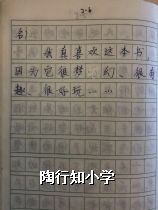 2-6
我真喜欢这本书,
因为它很梦幻、很有
趣、很好玩……
陶行知小学